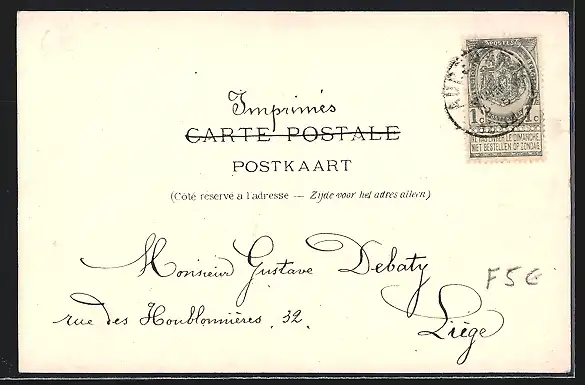 Imprimés
CARTE POSTALE
POSTKAART
(Côté réservé à l'adresse — Zijde voor het adres alleen)
POSTES
1c 1c
NE PAS LIVRER LE DIMANCHE
NIET BESTELLEN OP ZONDAG
Monsieur Gustave Debaty
rue des Houblonnières. 32.
Liège
F5E